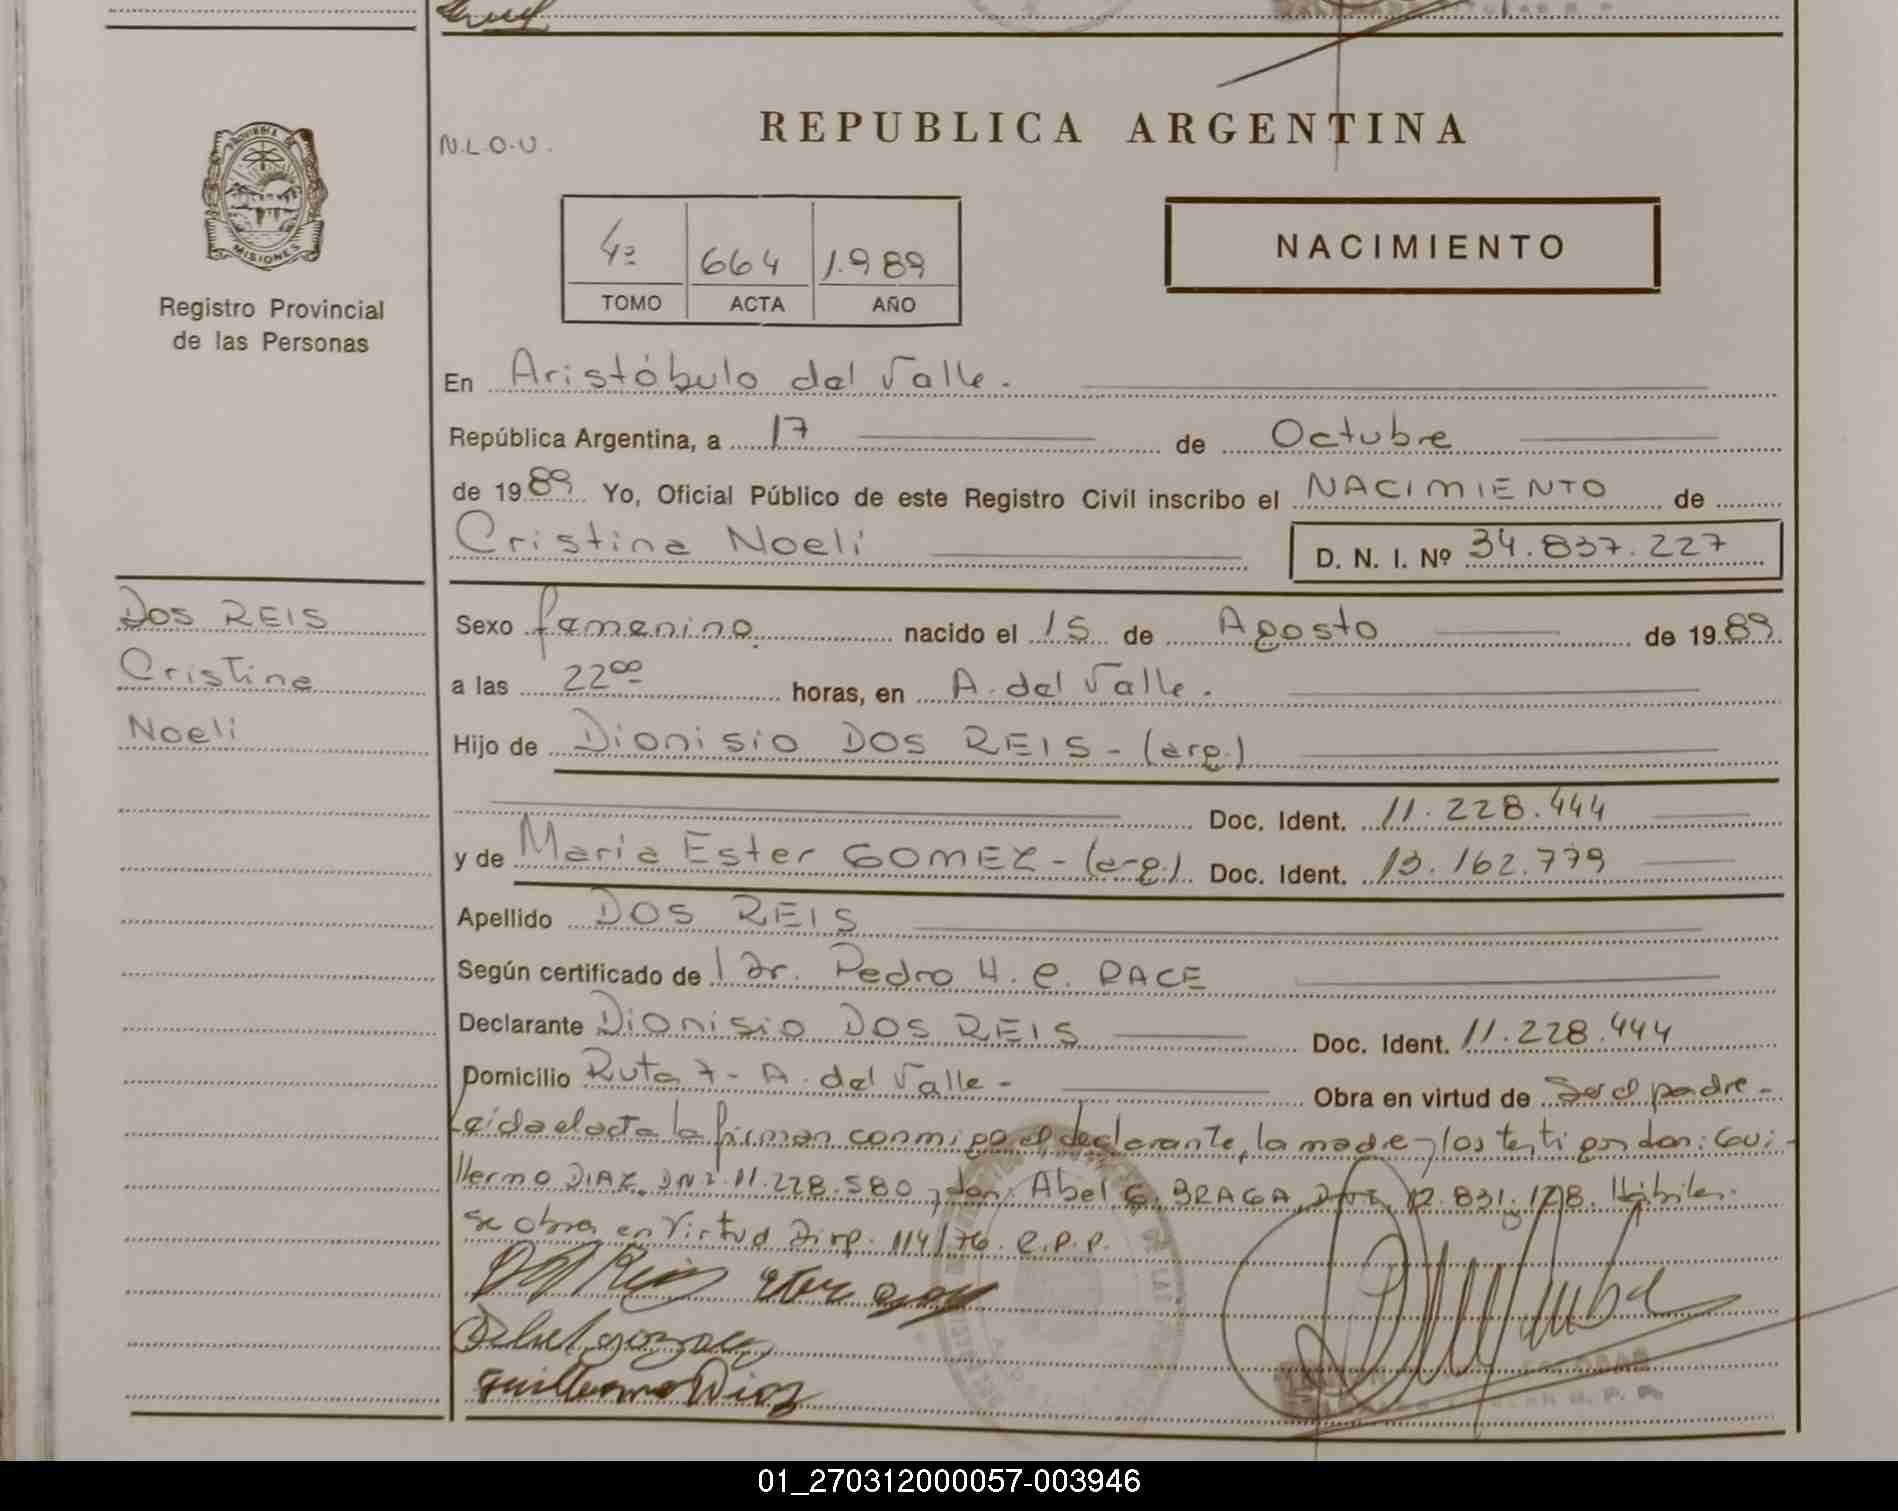 PROVINCIA DE
MISIONES
Registro Provincial
de las Personas
N.L.O.U.
REPUBLICA ARGENTINA
4º 664 1.989
TOMO ACTA AÑO
NACIMIENTO
En Aristóbulo del Valle.
República Argentina, a 17 de Octubre
de 1989 Yo, Oficial Público de este Registro Civil inscribo el NACIMIENTO de
Cristina Noeli D. N. I. Nº 34.837.227
DOS REIS
Cristina
Noeli
Sexo femenino. nacido el 15 de Agosto de 1989
a las 22⁰⁰ horas, en A. del Valle.
Hijo de Dionisio DOS REIS - (arg.)
Doc. Ident. 11.228.444
y de Maria Ester GOMEZ - (arg.) Doc. Ident. 13.162.779
Apellido DOS REIS
Según certificado de Dr. Pedro H. C. PACE
Declarante Dionisio DOS REIS Doc. Ident. 11.228.444
Domicilio Ruta 7 - A. del Valle - Obra en virtud de Ser el padre -
Leida el acta la firman conmigo el declarante, la madre y los testigos don: Gui-
llermo DIAZ, DNI. 11.228.580 y don: Abel G. BRAGA DNI. 12.831.178. Hábiles.
se obra en virtud Disp. 114/76. R.P.P.
Dos Reis Ester
Guillermo Diaz
01_270312000057-003946